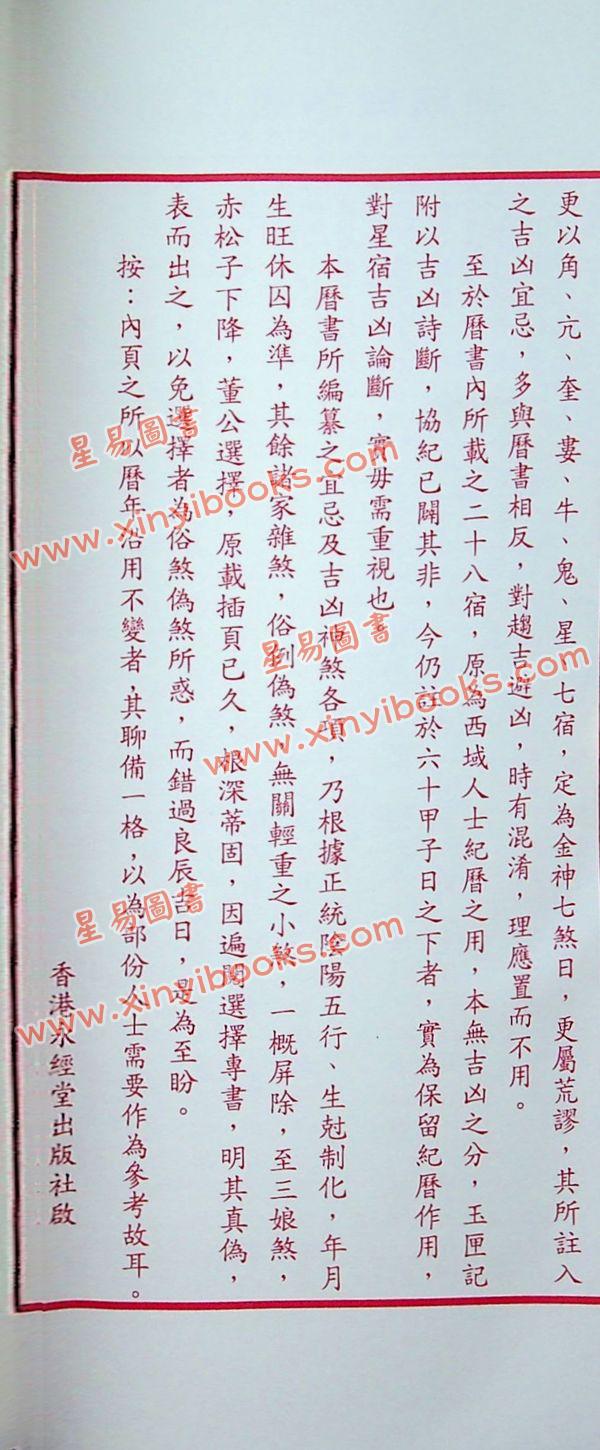 更以角、亢、奎、婁、牛、鬼、星、七宿，定為金神七煞日，更屬荒謬，其所註入
之吉凶宜忌，多與曆書相反，對趨吉避凶，時有混淆，理應置而不用。
至於曆書內所載之二十八宿，原為西域人士紀曆之用，本無吉凶之分，玉匣記
附以吉凶詩斷，協紀已闢其非，今仍註於六十甲子日之下者，實為保留紀曆作用，
對星宿吉凶論斷，實毋需重視也
本曆書所編纂之宜忌及吉凶神煞各項，乃根據正統陰陽五行、生尅制化，年月
生旺休囚為準，其餘諸家雜煞，俗例偽煞，無關輕重之小煞，一概屏除，至三娘煞，
赤松子下降，董公選擇，原載插頁已久，根深蒂固，因遍閱選擇專書，明其真偽，
表而出之，以免選擇者為俗煞偽煞所惑，而錯過良辰吉日，是為至盼。
按：內頁之所以曆年沿用不變者，其聊備一格，以為部份人士需要作為參考故耳。
香港永經堂出版社啟
星易圖書
www.xinyibooks.com
星易圖書
www.xinyibooks.com
星易圖書
www.xinyibooks.com